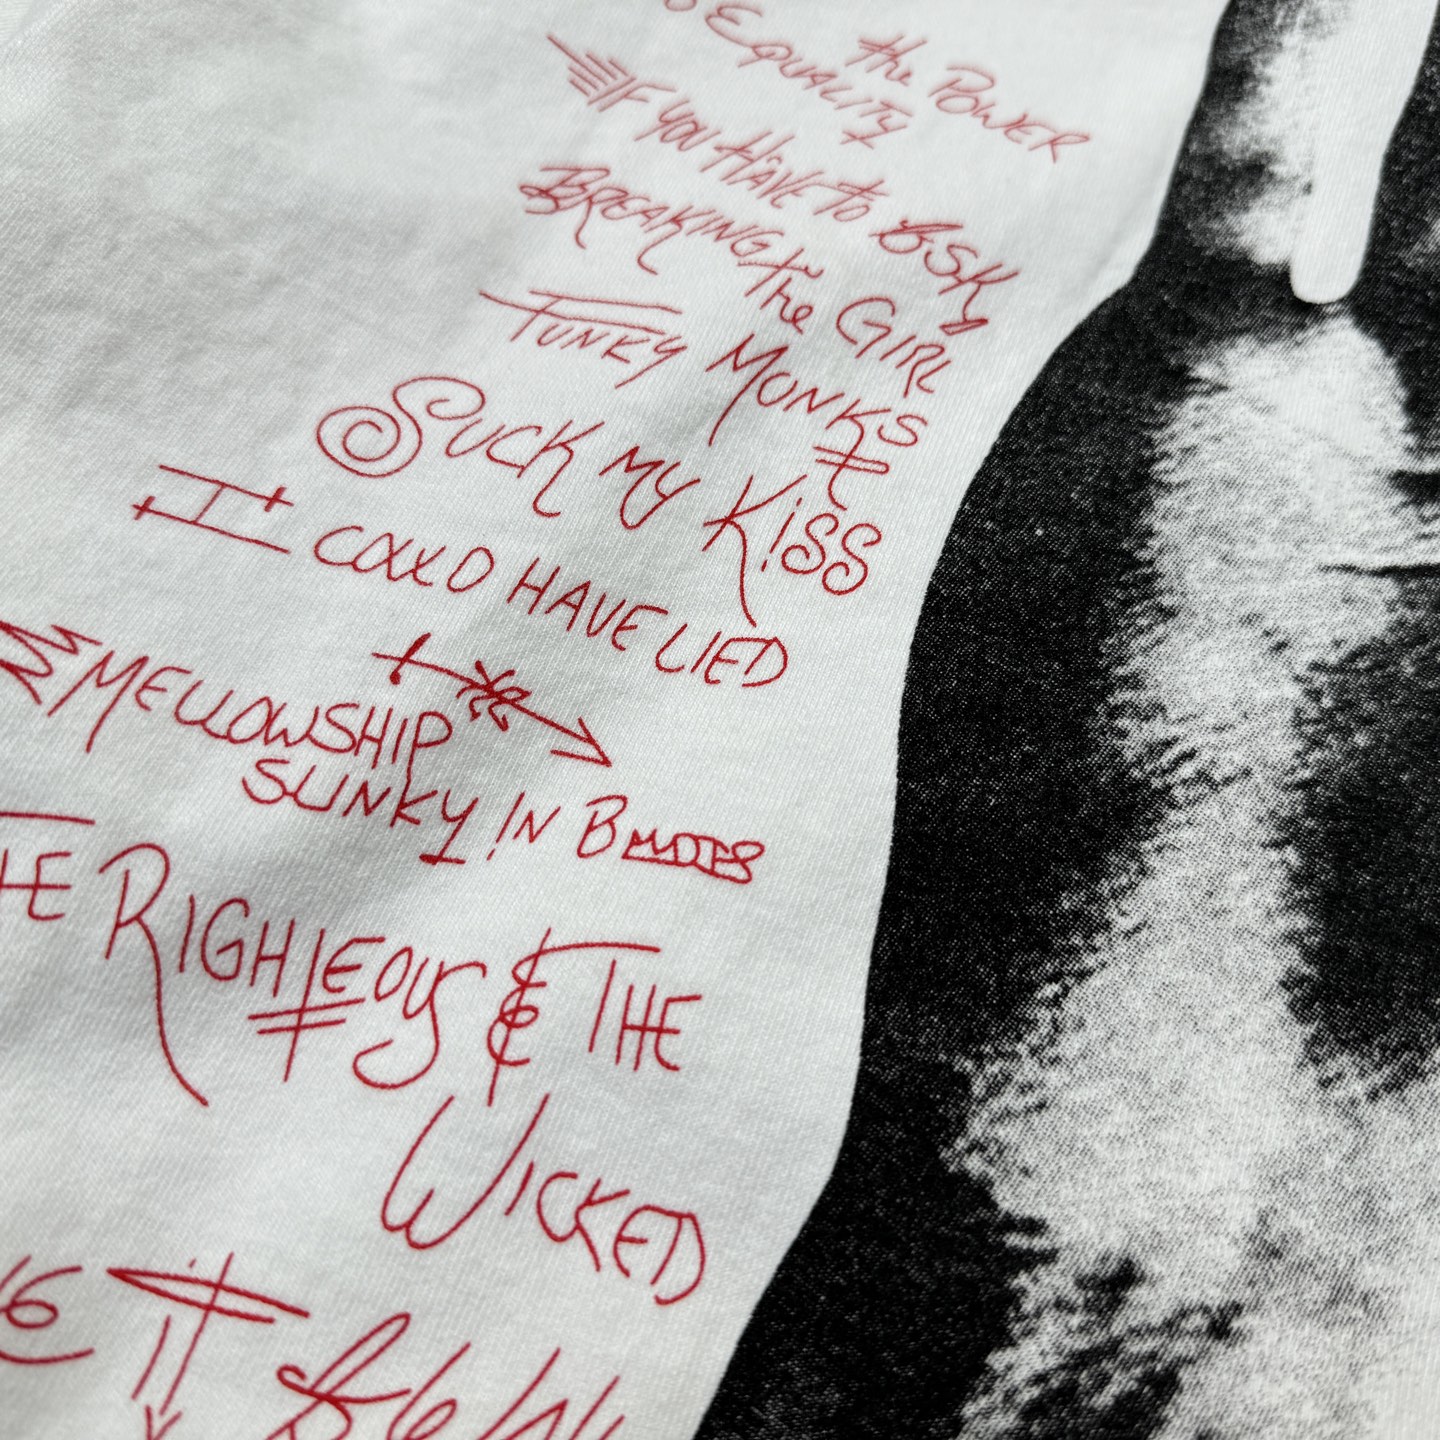 the POWER
EQUALITY
IF YOU HAVE to ASK
BREAKING the GIRL
FUNKY MONKS
SUCK MY KiSS
I COULD HAVE LIED
MELLOWSHIP
SLINKY IN B
RIGHTEOUS & THE
WICKED